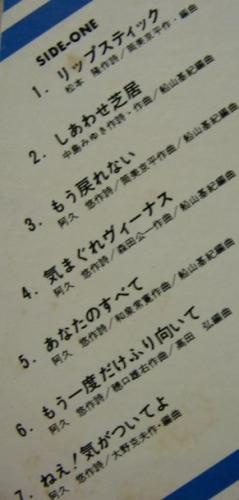 SIDE-ONE
1. リップスティック
松本 隆作詩／筒美京平作・編曲
2. しあわせ芝居
中島みゆき作詩・作曲／船山基紀編曲
3. もう戻れない
阿久 悠作詩／筒美京平作曲／船山基紀編曲
4. 気まぐれヴィーナス
阿久 悠作詩／森田公一作曲／船山基紀編曲
5. あなたのすべて
阿久 悠作詩／和泉常寛作曲／船山基紀編曲
6. もう一度だけふり向いて
阿久 悠作詩／穂口雄右作曲／高田 弘編曲
7. ねえ！気がついてよ
阿久 悠作詩／大野克夫作・編曲